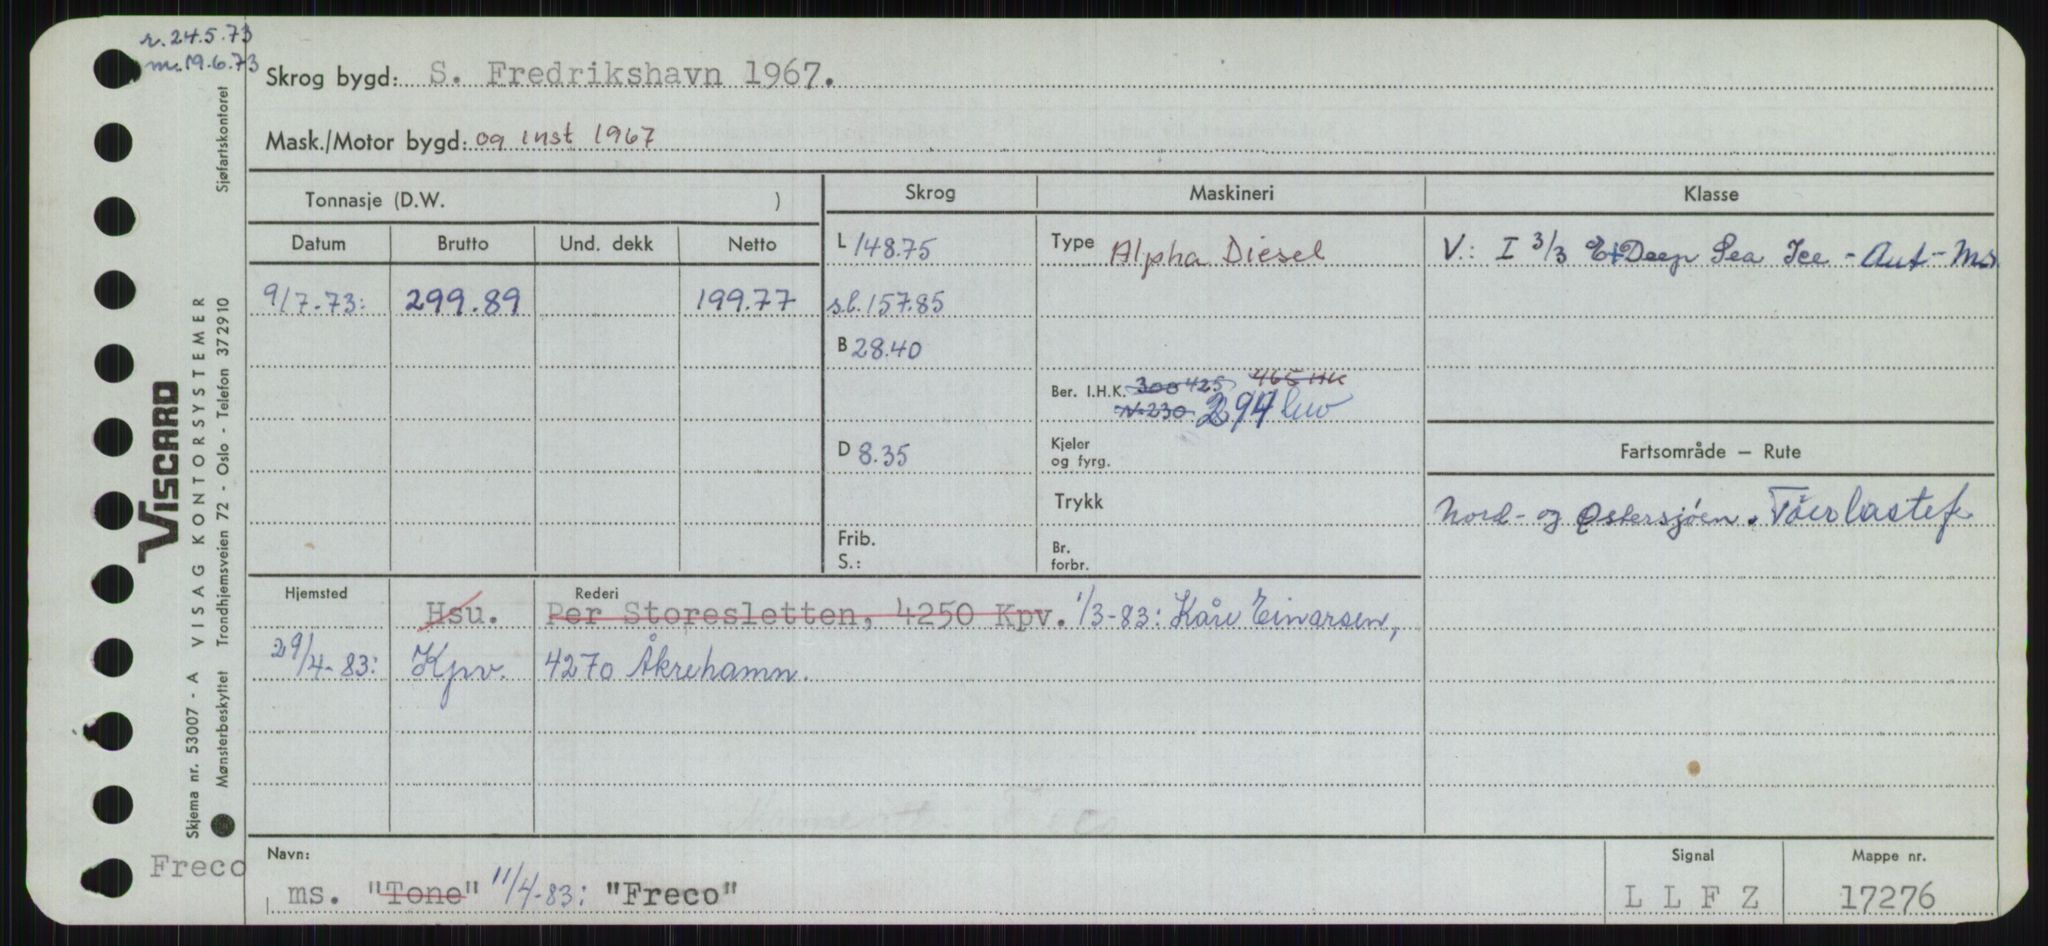 r. 24.5.73
m. 19.6.73
Skrog bygd: S. Fredrikshavn 1967.
Mask./Motor bygd: og inst 1967
Tonnasje (D.W. )
Skrog
Maskineri
Klasse
Datum
Brutto
Und. dekk
Netto
L 148.75
Type Alpha Diesel
V.: I 3/3 E+Deep Sea Ice - Aut - Ms
9/7-73: 299.89 199.77
s.l. 157.85
B 28.40
Ber. I.H.K. 300 425 465 HK
N-230 294 kw
D 8.35
Kjeler
og fyrg.
Fartsområde — Rute
Trykk
Nord- og Østersjøen. Tørrlastef
Frib.
S.:
Br.
forbr.
Hjemsted
Rederi
Hsu. Per Storesletten, 4250 Kpv. 1/3-83: Kåre Einarsen,
29/4-83: Kpv. 4270 Åkrehamn.
Navn:
Signal
Mappe nr.
Freco
ms. "Tone" 11/4-83: "Freco"
L L F Z
17276
VISCARD
Skjema nr. 53007 - A VISAG KONTORSYSTEMER
Mønsterbeskyttet Trondhjemsveien 72 - Oslo - Telefon 372910
Sjøfartskontoret